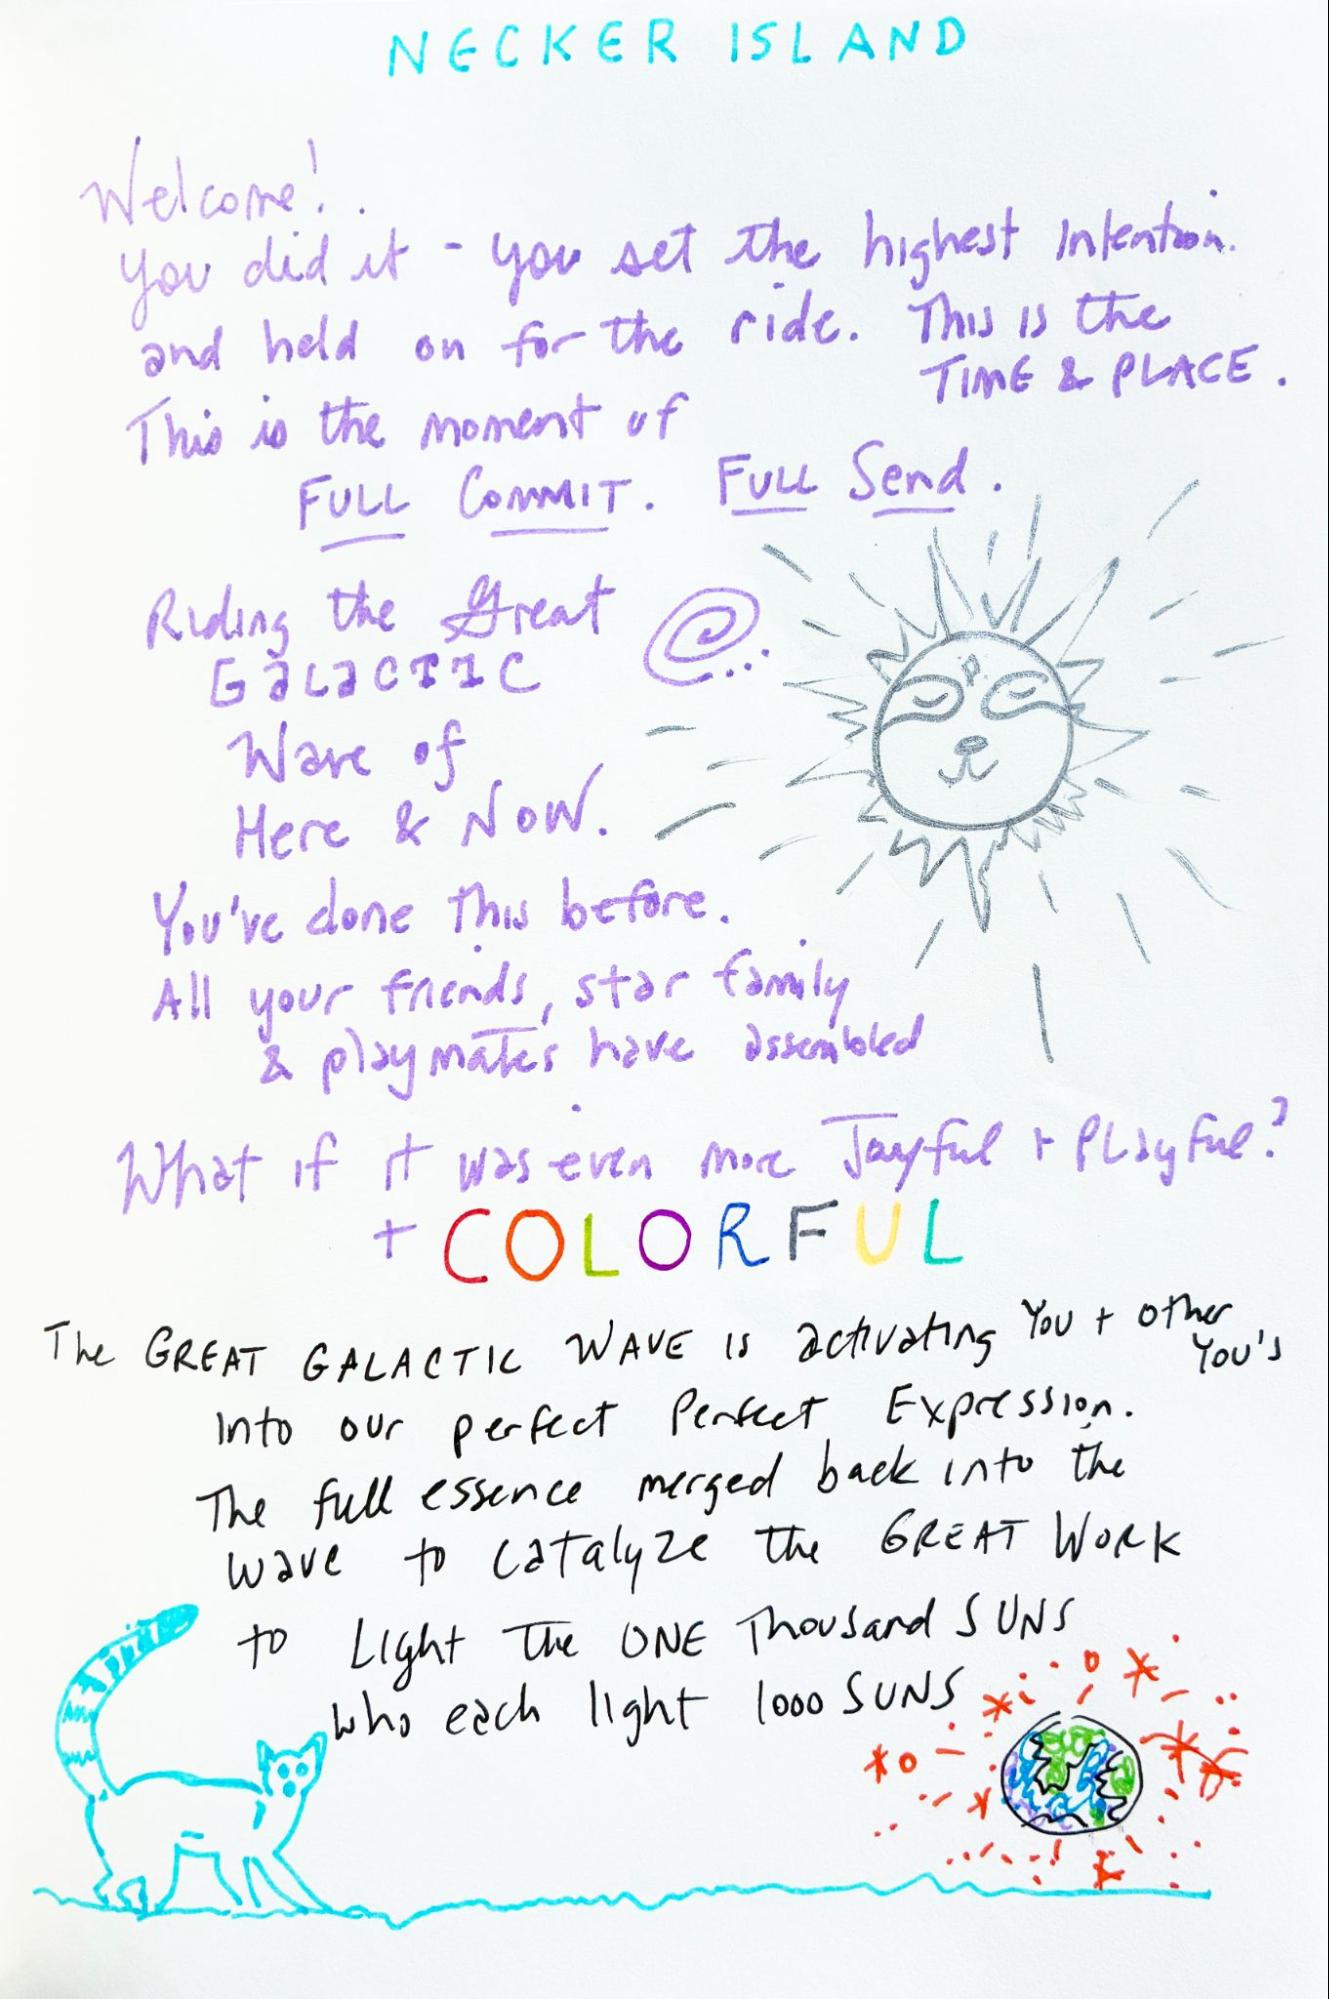 NECKER ISLAND
Welcome!
You did it - you set the highest Intention.
and held on for the ride. This is the
TIME & PLACE.
This is the moment of
FULL COMMIT. FULL Send.
Riding the Great
GALACTIC
Wave of
Here & Now.
You've done this before.
All your friends, star family
& playmates have assembled
What if it was even more Joyful + Playful?
+ COLORFUL
The GREAT GALACTIC WAVE is activating You + other
You's
Into our perfect Perfect Expression.
The full essence merged back into the
wave to catalyze the GREAT WORK
to Light the ONE Thousand SUNS
who each light 1000 SUNS